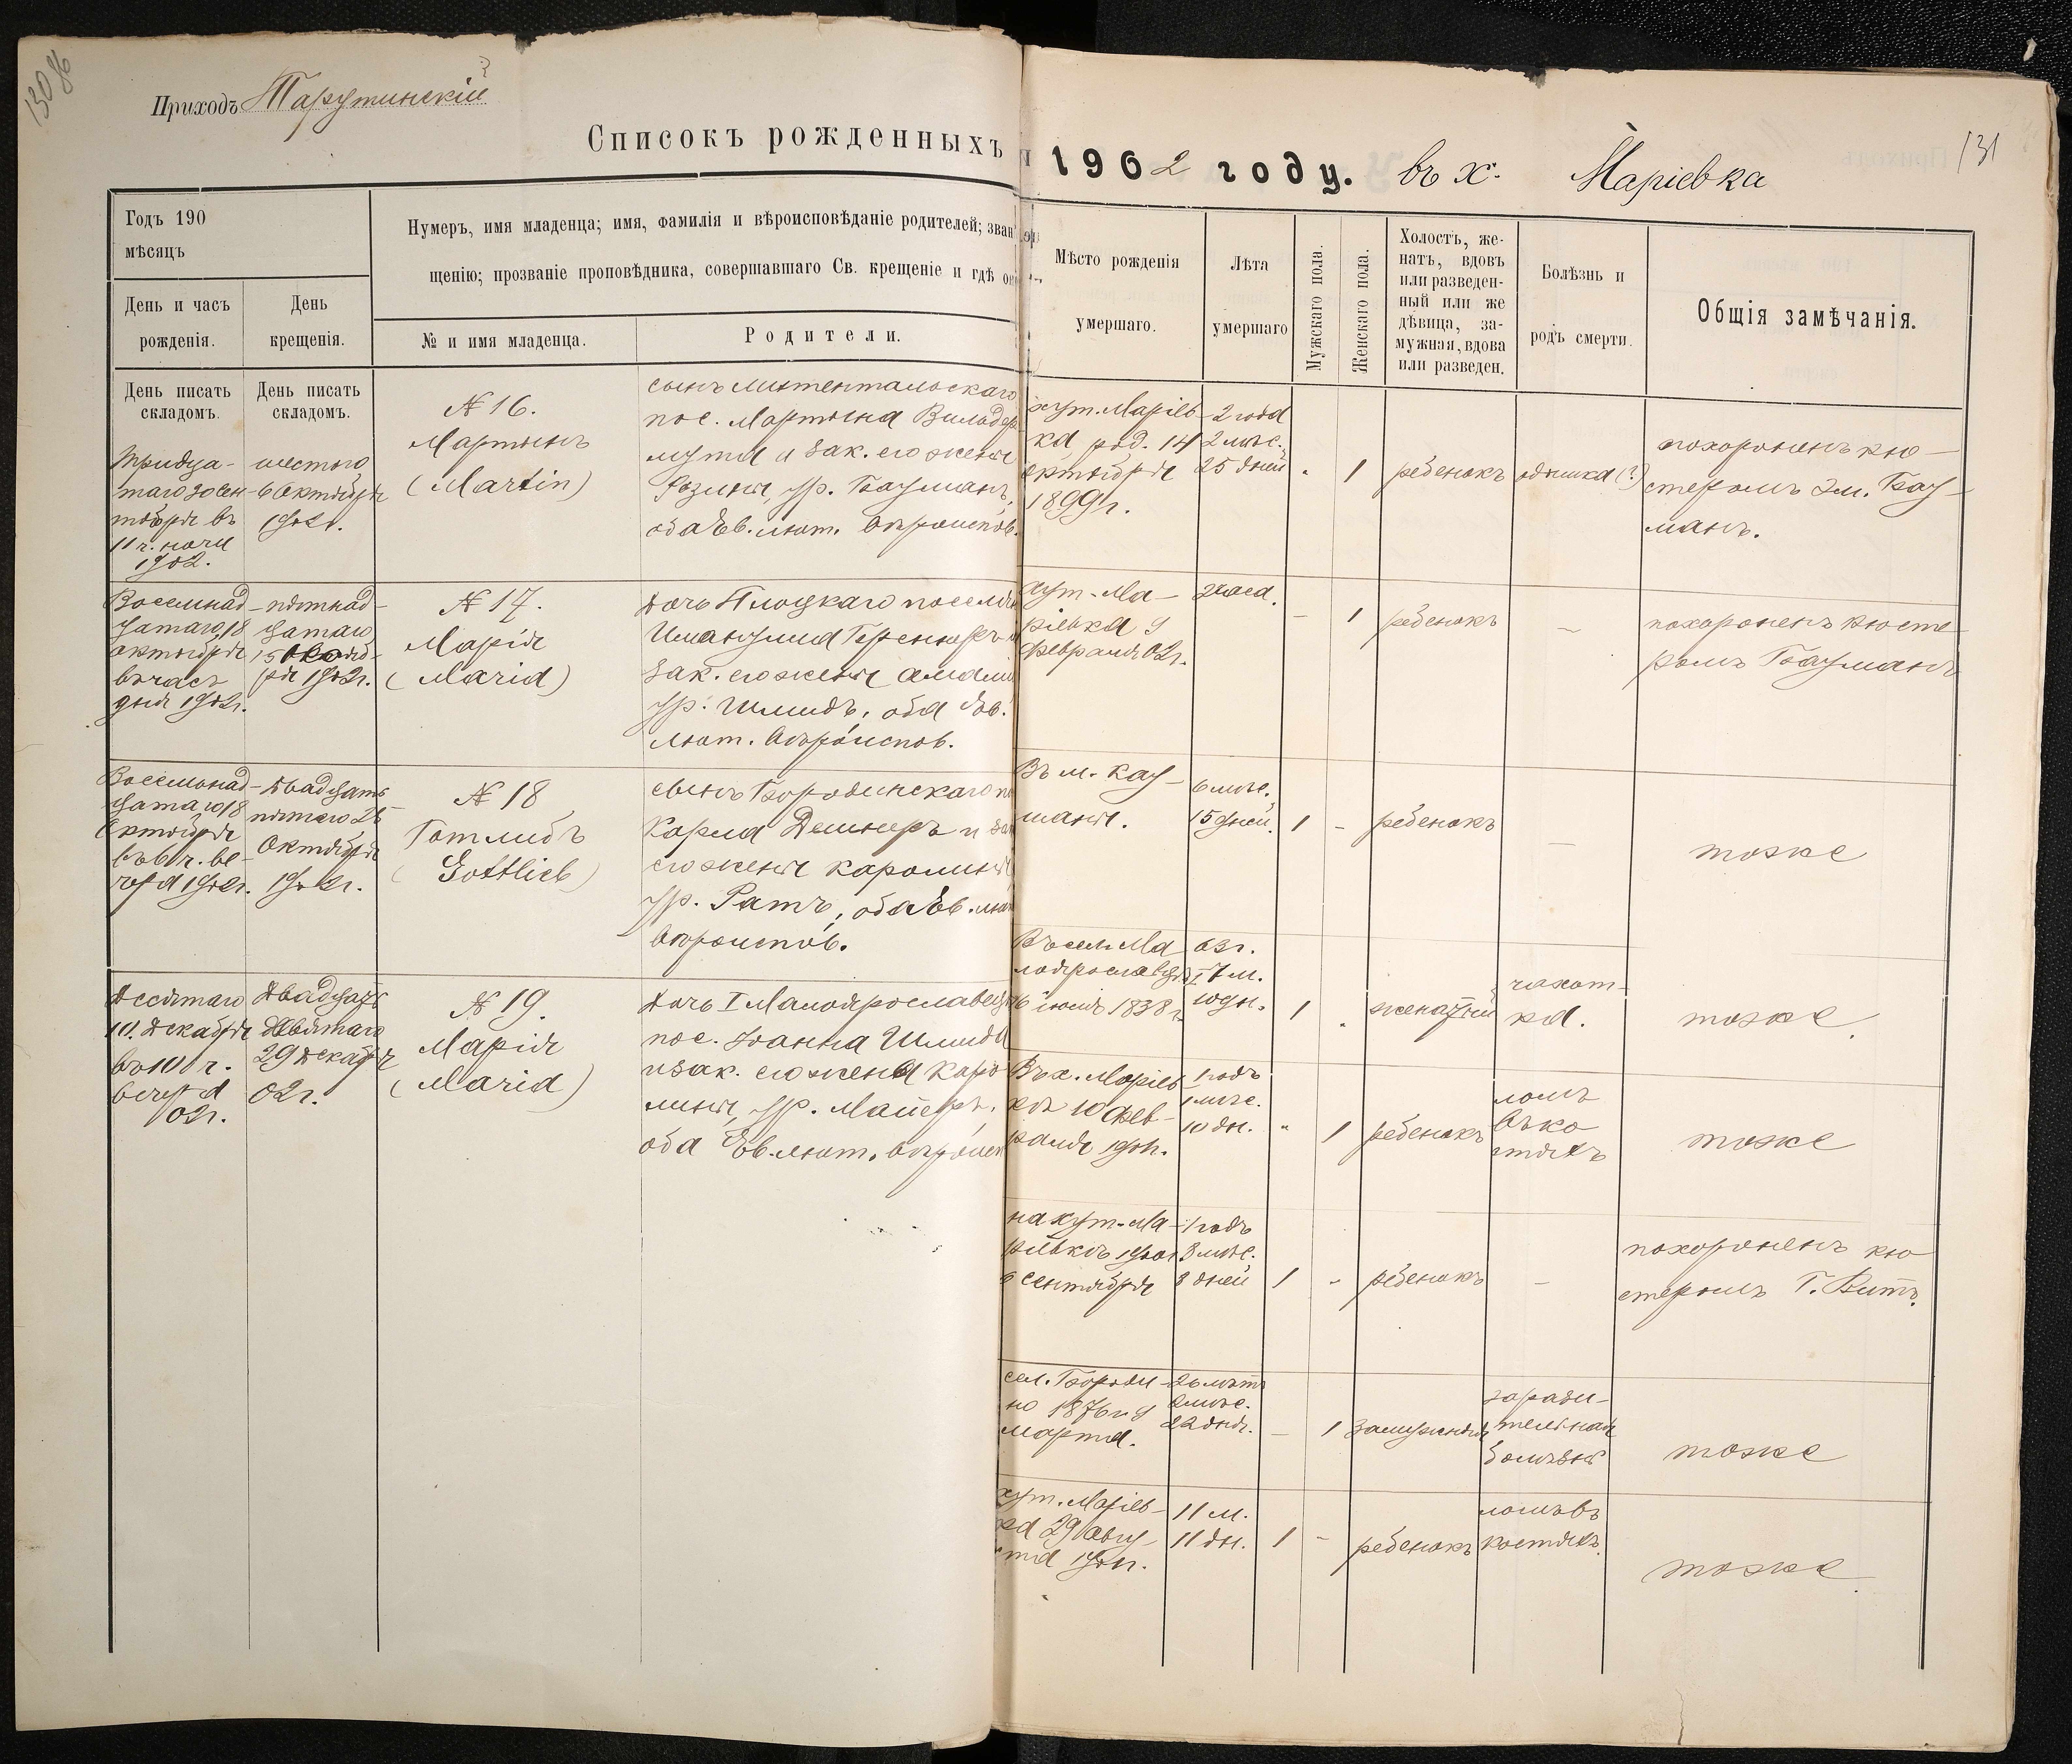 130 об
Приходъ Тарутинскій
Списокъ рожденныхъ
Годъ 190
мѣсяцъ
Нумеръ, имя младенца; имя, фамилія и вѣроисповѣданіе родителей; зван
щенію; прозваніе проповѣдника, совершавшаго Св. крещеніе и гдѣ он
День и часъ
рожденія.
День
крещенія.
№ и имя младенца.
Родители.
День писать
складомъ.
День писать
складомъ.
Тридца-
таго 30 сен
тября въ
11 ч. ночи
1902.
шестого
6 Октября
1902 г.
№ 16.
Мартынъ
(Martin)
сынъ Лихтентальскаго
пос. Мартына Вильдер
мута и зак. его жены
Розины, ур. Бауманъ,
оба Ев. лют. вѣроиспов.
Восемнад-
цатаго, 18
октября
въ часъ
дня 1902 г.
пятнад-
цатаго
15
ря 1902 г.
№ 17.
Марія
(Maria)
дочь Плоцкаго поселян
Имануила
зак. его жены Амаліи
ур. Шмидъ, оба Ев.
лют. вѣроиспов.
Восемнад-
цатаго 18
Октября
въ 6 ч. ве-
чера 1902 г.
Двадцать
пятаго 25
Октября
1902 г.
№ 18
Готлибъ
(Gottlieb)
сынъ Бородинскаго по
Карла Дешнеръ и зак
его жены Каролины
ур. Ратъ, оба Ев. лют
вѣроиспов.
Десятаго
10. Декабря
въ 10 ч.
вечера
02 г.
Двадцать
девятаго
29 декабря
02 г.
№ 19.
Марія
(Maria)
дочь I Малоярославецк
пос. Іоанна Шмида
и зак. его жены Каро
лины, ур. Майеръ,
оба Ев. лют. вѣроисп
1902 году. въ х. Маріевка
131
Мѣсто рожденія
умершаго.
Лѣта
умершаго
Мужскаго пола.
Женскаго пола.
Холостъ, же-
натъ, вдовъ
или разведен-
ный или же
дѣвица, за-
мужная, вдова
или разведен.
Болѣзнь и
родъ смерти.
Общія замѣчанія.
хут. Маріев-
ка род. 14
октября
1899 г.
2 года
2 мѣс.
25 дней
"
1
ребенокъ
одышка (?)
похороненъ кю-
стеромъ Эм. Бау-
манъ.
хут. Ма-
ріевка 9
февраля 02 г.
2 часа.
–
1
ребенокъ
–
похороненъ кюсте
ромъ Бауманъ
Въ м. Кау-
шаны.
6 мѣс.
15 дней.
1
–
ребенокъ
–
тоже
Въ сел. Ма
лоярославцѣ I
6 іюля 1838 г.
63 г.
7 м.
10 дн.
1
"
женатый
чахот-
ка.
тоже
Въ х. Маріев-
кѣ 10 фев-
раля 1901.
1 годъ
1 мѣс.
10 дн.
"
1
ребенокъ
ломъ
въ ко
стяхъ
тоже
на хут. Ма-
ріевкѣ 1901
6 сентября
1 годъ
3 мѣс.
8 дней
1
–
ребенокъ
–
похороненъ кю
стеромъ Г. Витъ.
сел. Бороди-
но 1876 г. 9
марта.
26 лѣтъ
2 мѣс.
22 дня.
–
1
замужняя
зарази-
тельная
болѣзнь
тоже
хут. Маріев-
ка 29 авгу-
ста 1901.
11 м.
11 дн.
1
–
ребенокъ
ломъ въ
костяхъ.
тоже.